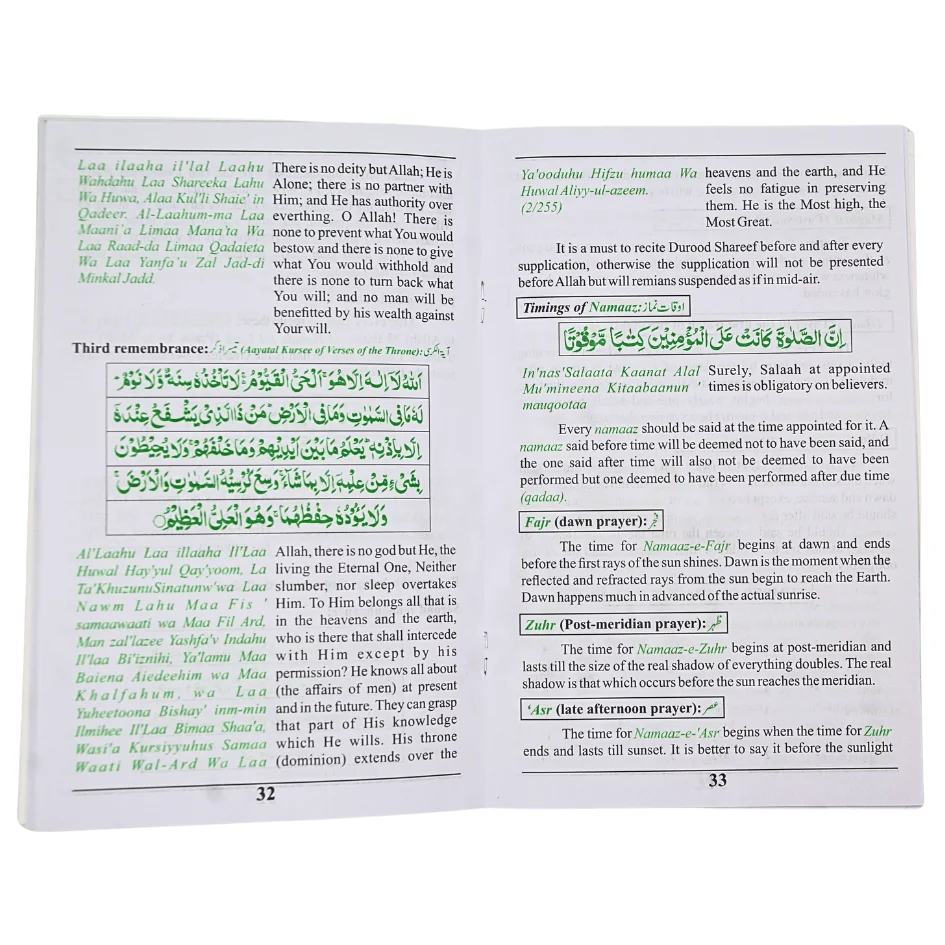 Laa ilaaha il'lal Laahu
Wahdahu Laa Shareeka Lahu
Wa Huwa, Alaa Kul'li Shaie' in
Qadeer. Al-Laahum-ma Laa
Maani'a Limaa Mana'ta Wa
Laa Raad-da Limaa Qadaieta
Wa Laa Yanfa'u Zal Jad-di
Minkal Jadd.
There is no deity but Allah; He is
Alone; there is no partner with
Him; and He has authority over
everthing. O Allah! There is
none to prevent what You would
bestow and there is none to give
what You would withhold and
there is none to turn back what
You will; and no man will be
benefitted by his wealth against
Your will.
Third remembrance: تیسرا ذکر (Aayatal Kursee of Verses of the Throne): آیۃ الکرسی
اَللهُ لَاۤ اِلٰهَ اِلَّا هُوَۚ اَلْحَیُّ الْقَیُّوْمُ ۚ لَا تَاْخُذُهٗ سِنَةٌ وَّلَا نَوْمٌ ؕ
لَهٗ مَا فِی السَّمٰوٰتِ وَمَا فِی الْاَرْضِ ؕ مَنْ ذَا الَّذِیْ یَشْفَعُ عِنْدَهٗۤ
اِلَّا بِاِذْنِهٖ ؕ یَعْلَمُ مَا بَیْنَ اَیْدِیْهِمْ وَمَا خَلْفَهُمْ ۚ وَلَا یُحِیْطُوْنَ
بِشَیْءٍ مِّنْ عِلْمِهٖۤ اِلَّا بِمَا شَآءَ ۚ وَسِعَ كُرْسِیُّهُ السَّمٰوٰتِ وَالْاَرْضَ ۚ
وَلَا یَـُٔوْدُهٗ حِفْظُهُمَا ۚ وَهُوَ الْعَلِیُّ الْعَظِیْمُ
Al'Laahu Laa illaaha Il'Laa
Huwal Hay'yul Qay'yoom, La
Ta'KhuzunuSinatunw'wa Laa
Nawm Lahu Maa Fis '
samaawaati wa Maa Fil Ard,
Man zal'lazee Yashfa'v Indahu
Il'laa Bi'iznihi, Ya'lamu Maa
Baiena Aiedeehim wa Maa
Khalfahum, wa Laa
Yuheetoona Bishay' inm-min
Ilmihee Il'Laa Bimaa Shaa'a,
Wasi'a Kursiyyuhus Samaa
Waati Wal-Ard Wa Laa
Allah, there is no god but He, the
living the Eternal One, Neither
slumber, nor sleep overtakes
Him. To Him belongs all that is
in the heavens and the earth,
who is there that shall intercede
with Him except by his
permission? He knows all about
(the affairs of men) at present
and in the future. They can grasp
that part of His knowledge
which He wills. His throne
(dominion) extends over the
32
Ya'ooduhu Hifzu humaa Wa
Huwal Aliyy-ul-azeem.
(2/255)
heavens and the earth, and He
feels no fatigue in preserving
them. He is the Most high, the
Most Great.
It is a must to recite Durood Shareef before and after every
supplication, otherwise the supplication will not be presented
before Allah but will remians suspended as if in mid-air.
Timings of Namaaz: اوقات نماز
اِنَّ الصَّلٰوةَ كَانَتْ عَلَی الْمُؤْمِنِیْنَ كِتٰبًا مَّوْقُوْتًا
In'nas'Salaata Kaanat Alal
Mu'mineena Kitaabaanun '
mauqootaa
Surely, Salaah at appointed
times is obligatory on believers.
Every namaaz should be said at the time appointed for it. A
namaaz said before time will be deemed not to have been said, and
the one said after time will also not be deemed to have been
performed but one deemed to have been performed after due time
(qadaa).
Fajr (dawn prayer): فجر
The time for Namaaz-e-Fajr begins at dawn and ends
before the first rays of the sun shines. Dawn is the moment when the
reflected and refracted rays from the sun begin to reach the Earth.
Dawn happens much in advanced of the actual sunrise.
Zuhr (Post-meridian prayer): ظہر
The time for Namaaz-e-Zuhr begins at post-meridian and
lasts till the size of the real shadow of everything doubles. The real
shadow is that which occurs before the sun reaches the meridian.
'Asr (late afternoon prayer): عصر
The time for Namaaz-e-'Asr begins when the time for Zuhr
ends and lasts till sunset. It is better to say it before the sunlight
33